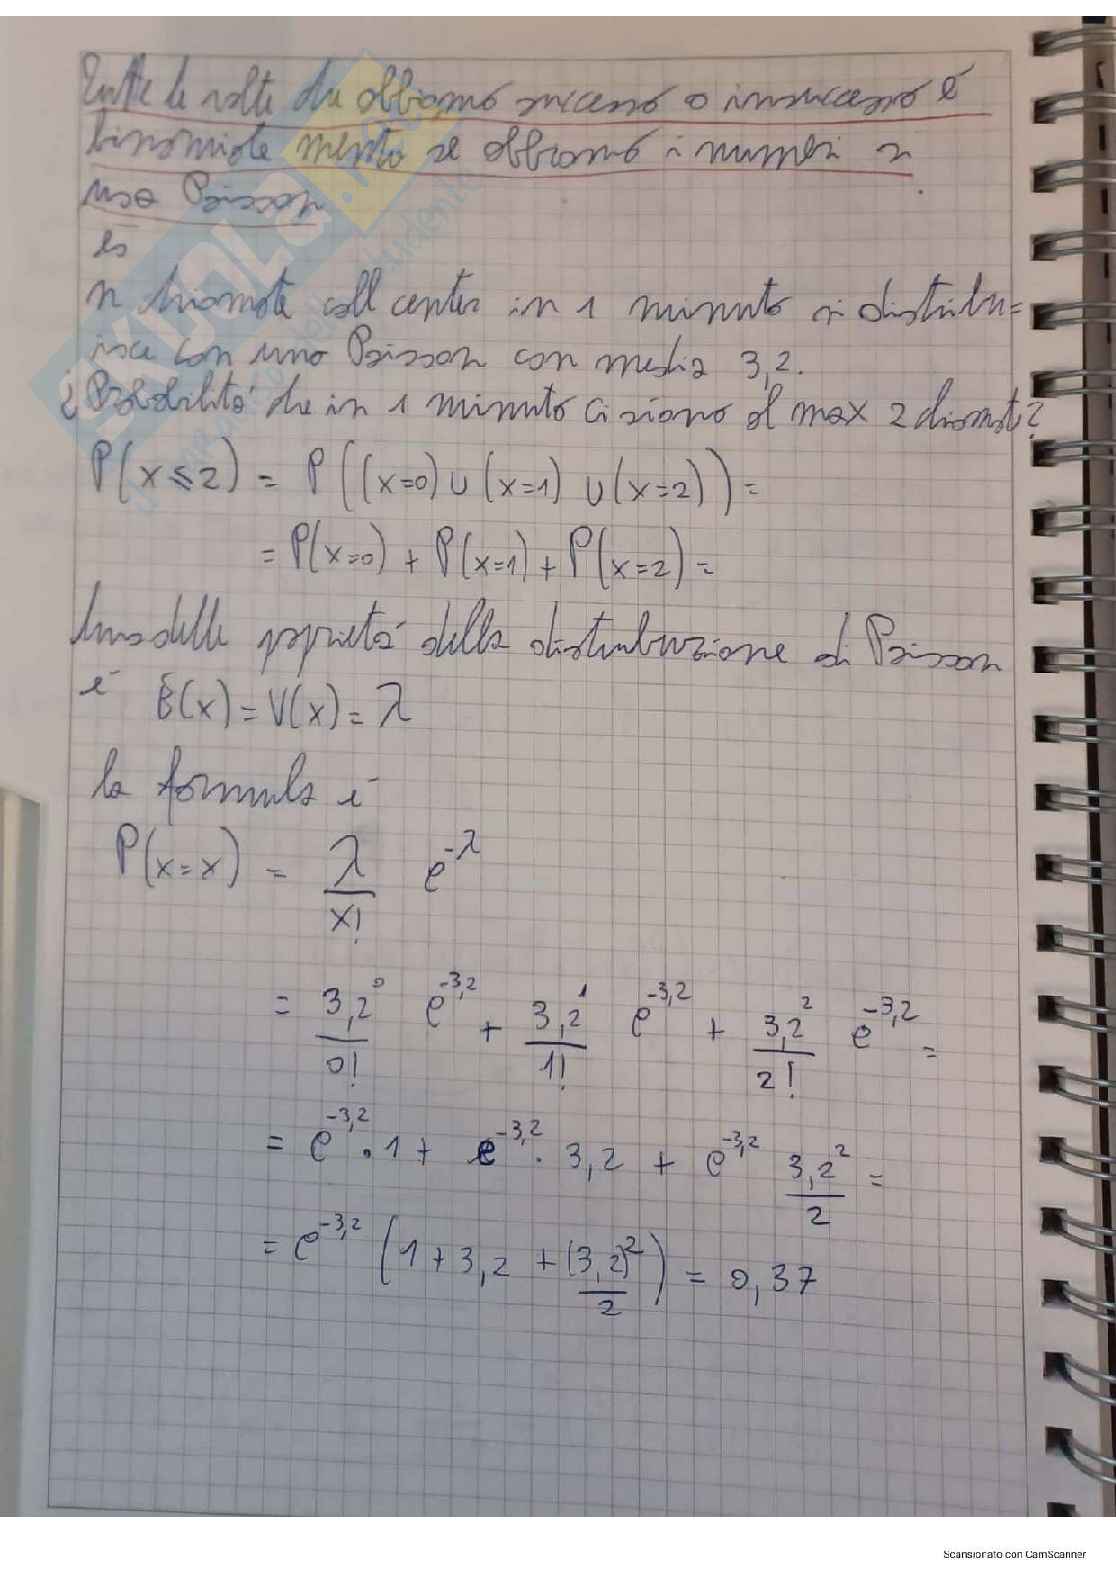 Tutte le volte che abbiamo successo o insuccesso è
binomiale mentre se abbiamo i numeri si
usa Poisson
es
n chiamate call center in 1 minuto si distribu=
isce con una Poisson con media 3,2.
¿Probabilità che in 1 minuto ci siano al max 2 chiamate?
P(x⩽2) = P((x=0)∪(x=1)∪(x=2)) =
= P(x=0) + P(x=1) + P(x=2) =
Una delle proprietà della distribuzione di Poisson
è E(x) = V(x) = λ
la formula è
P(x=x) = λ/x! e^-λ
= 3,2^0/0! e^-3,2 + 3,2^1/1! e^-3,2 + 3,2^2/2! e^-3,2 =
= e^-3,2 · 1 + e^-3,2 · 3,2 + e^-3,2 3,2^2/2 =
= e^-3,2 (1 + 3,2 + (3,2)^2/2) = 0,37
Scansionato con CamScanner